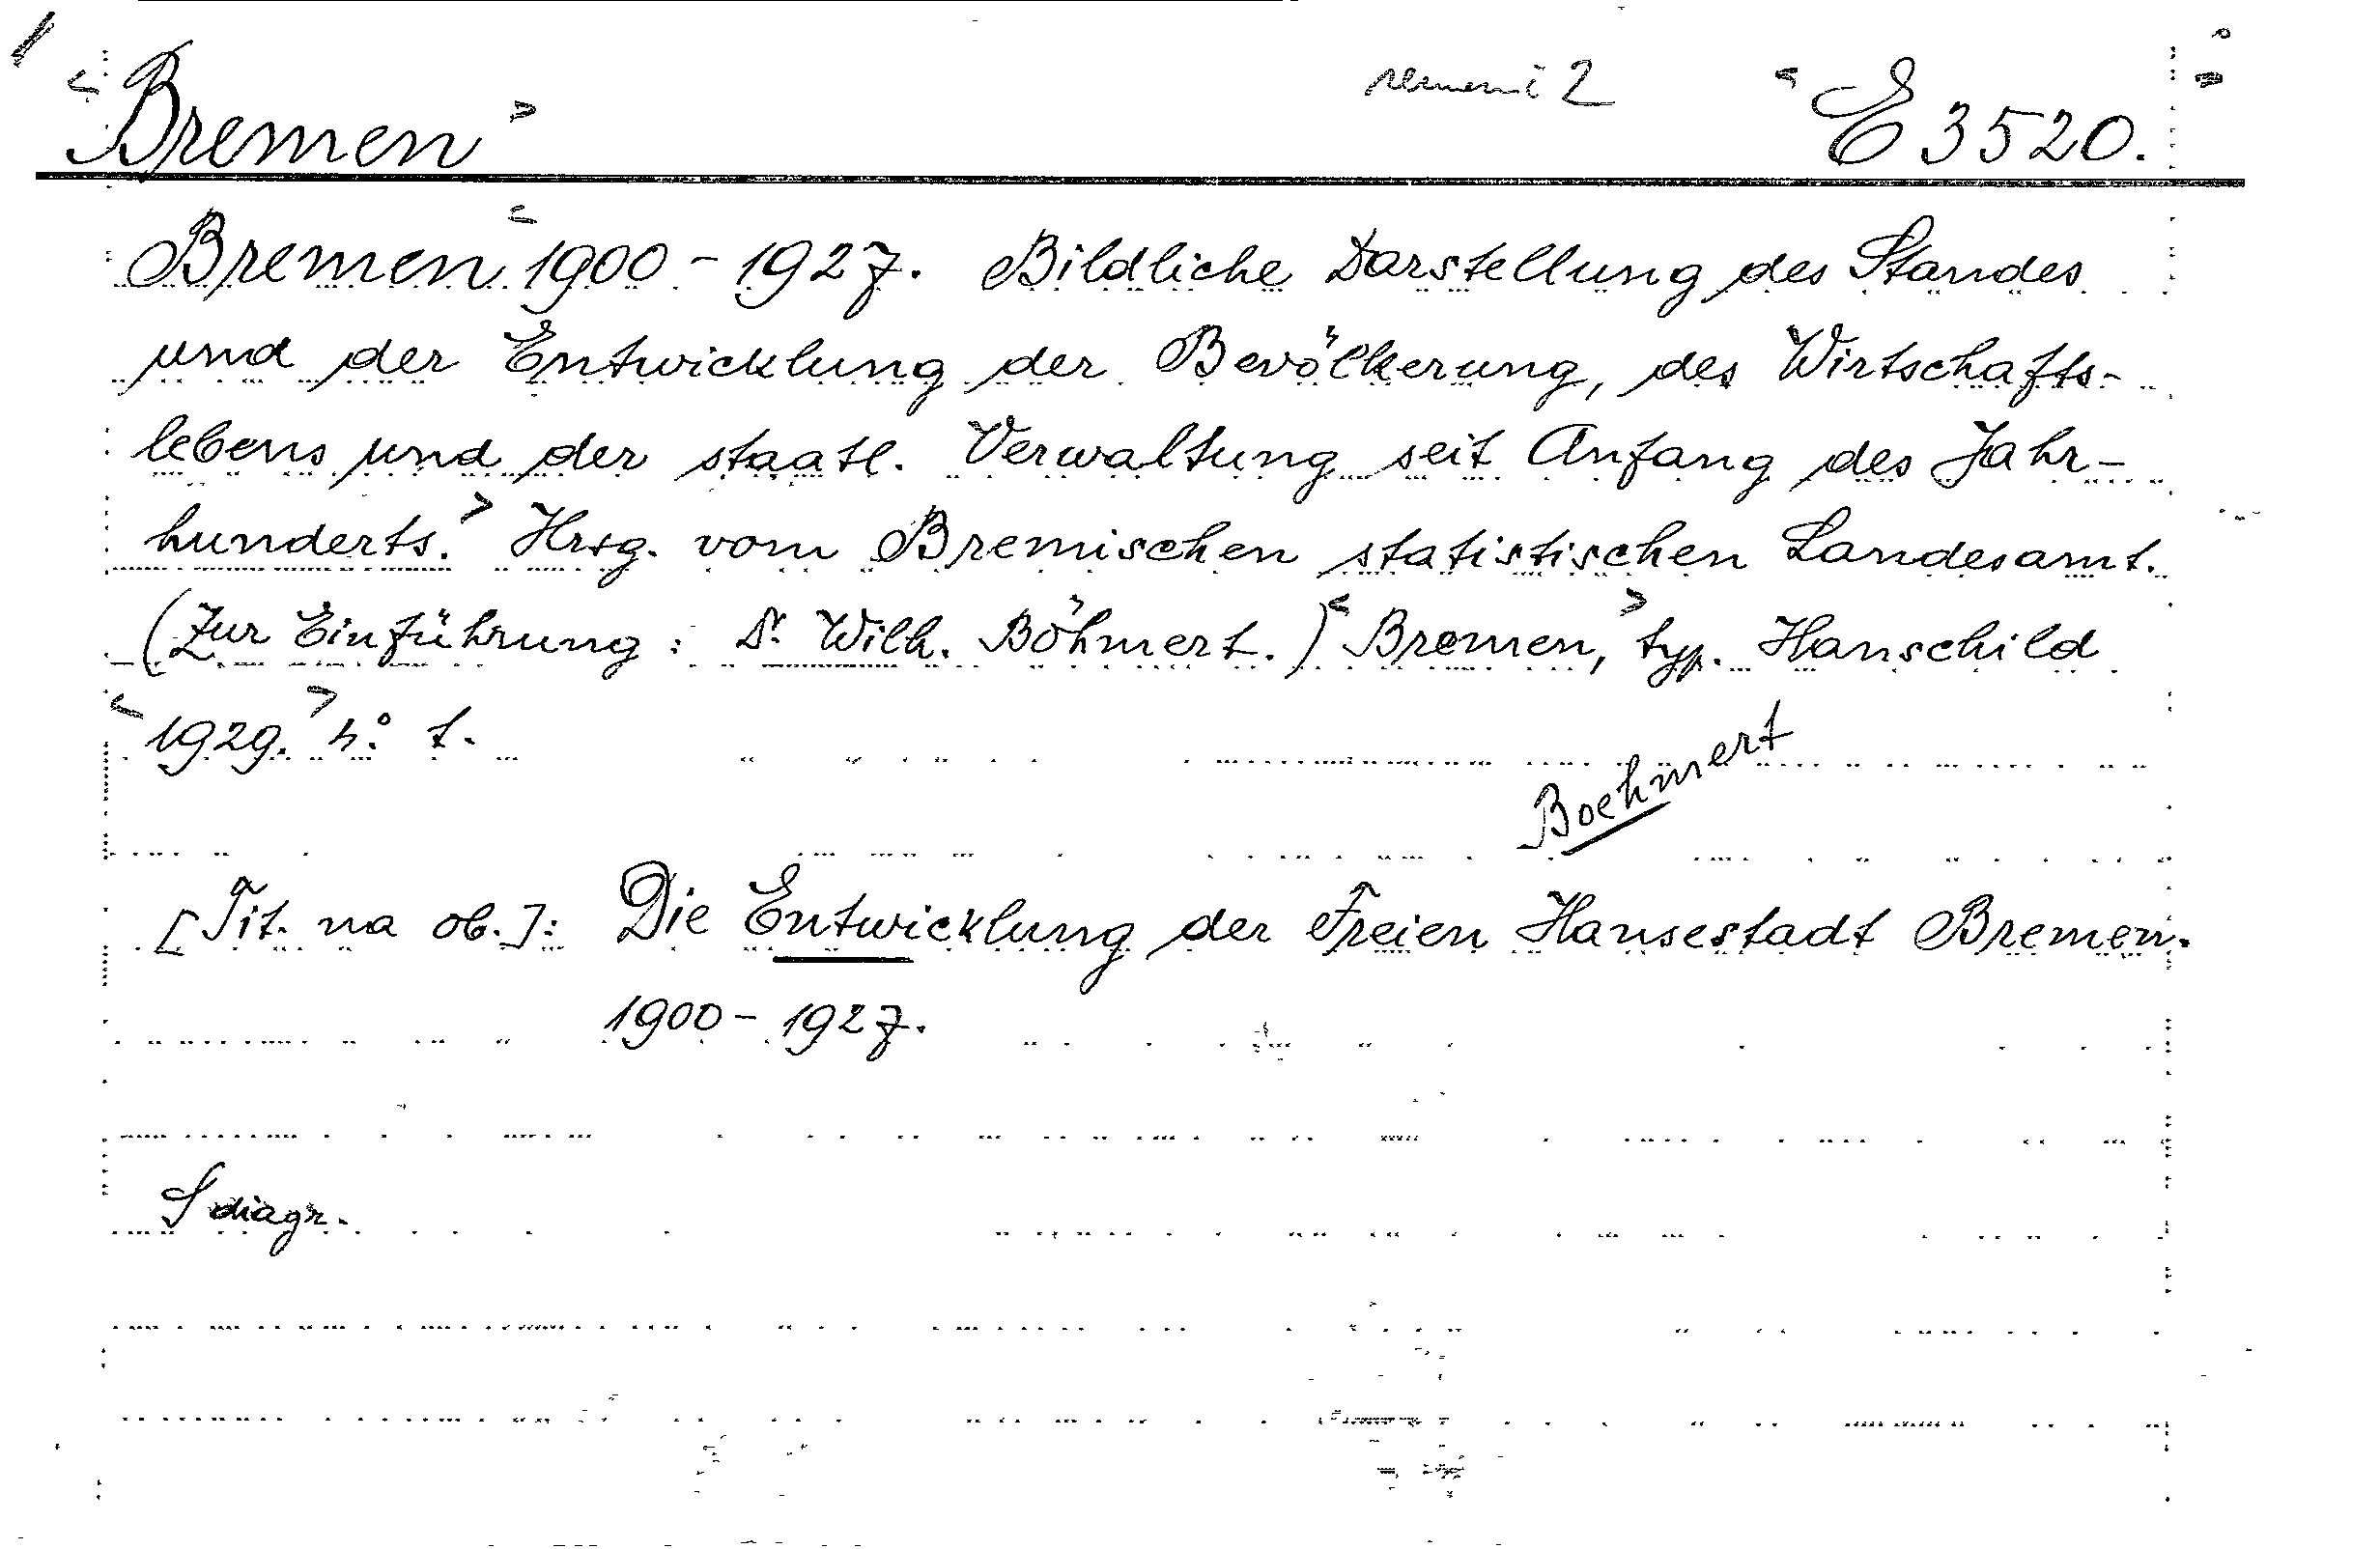 Bremen E 3520.
Bremen 1900 - 1927. Bildliche Darstellung des Standes
und der Entwicklung der Bevölkerung, des Wirtschafts-
lebens und der staatl. Verwaltung seit Anfang des Jahr-
hunderts. Hrsg. vom Bremischen statistischen Landesamt.
(Zur Einführung: Dr. Wilh. Böhmert.) Bremen, typ. Hauschild
1929. 4° f.
Boehmert
[Tit. na ob.]: Die Entwicklung der Freien Hansestadt Bremen.
1900 - 1927.
S diagr.